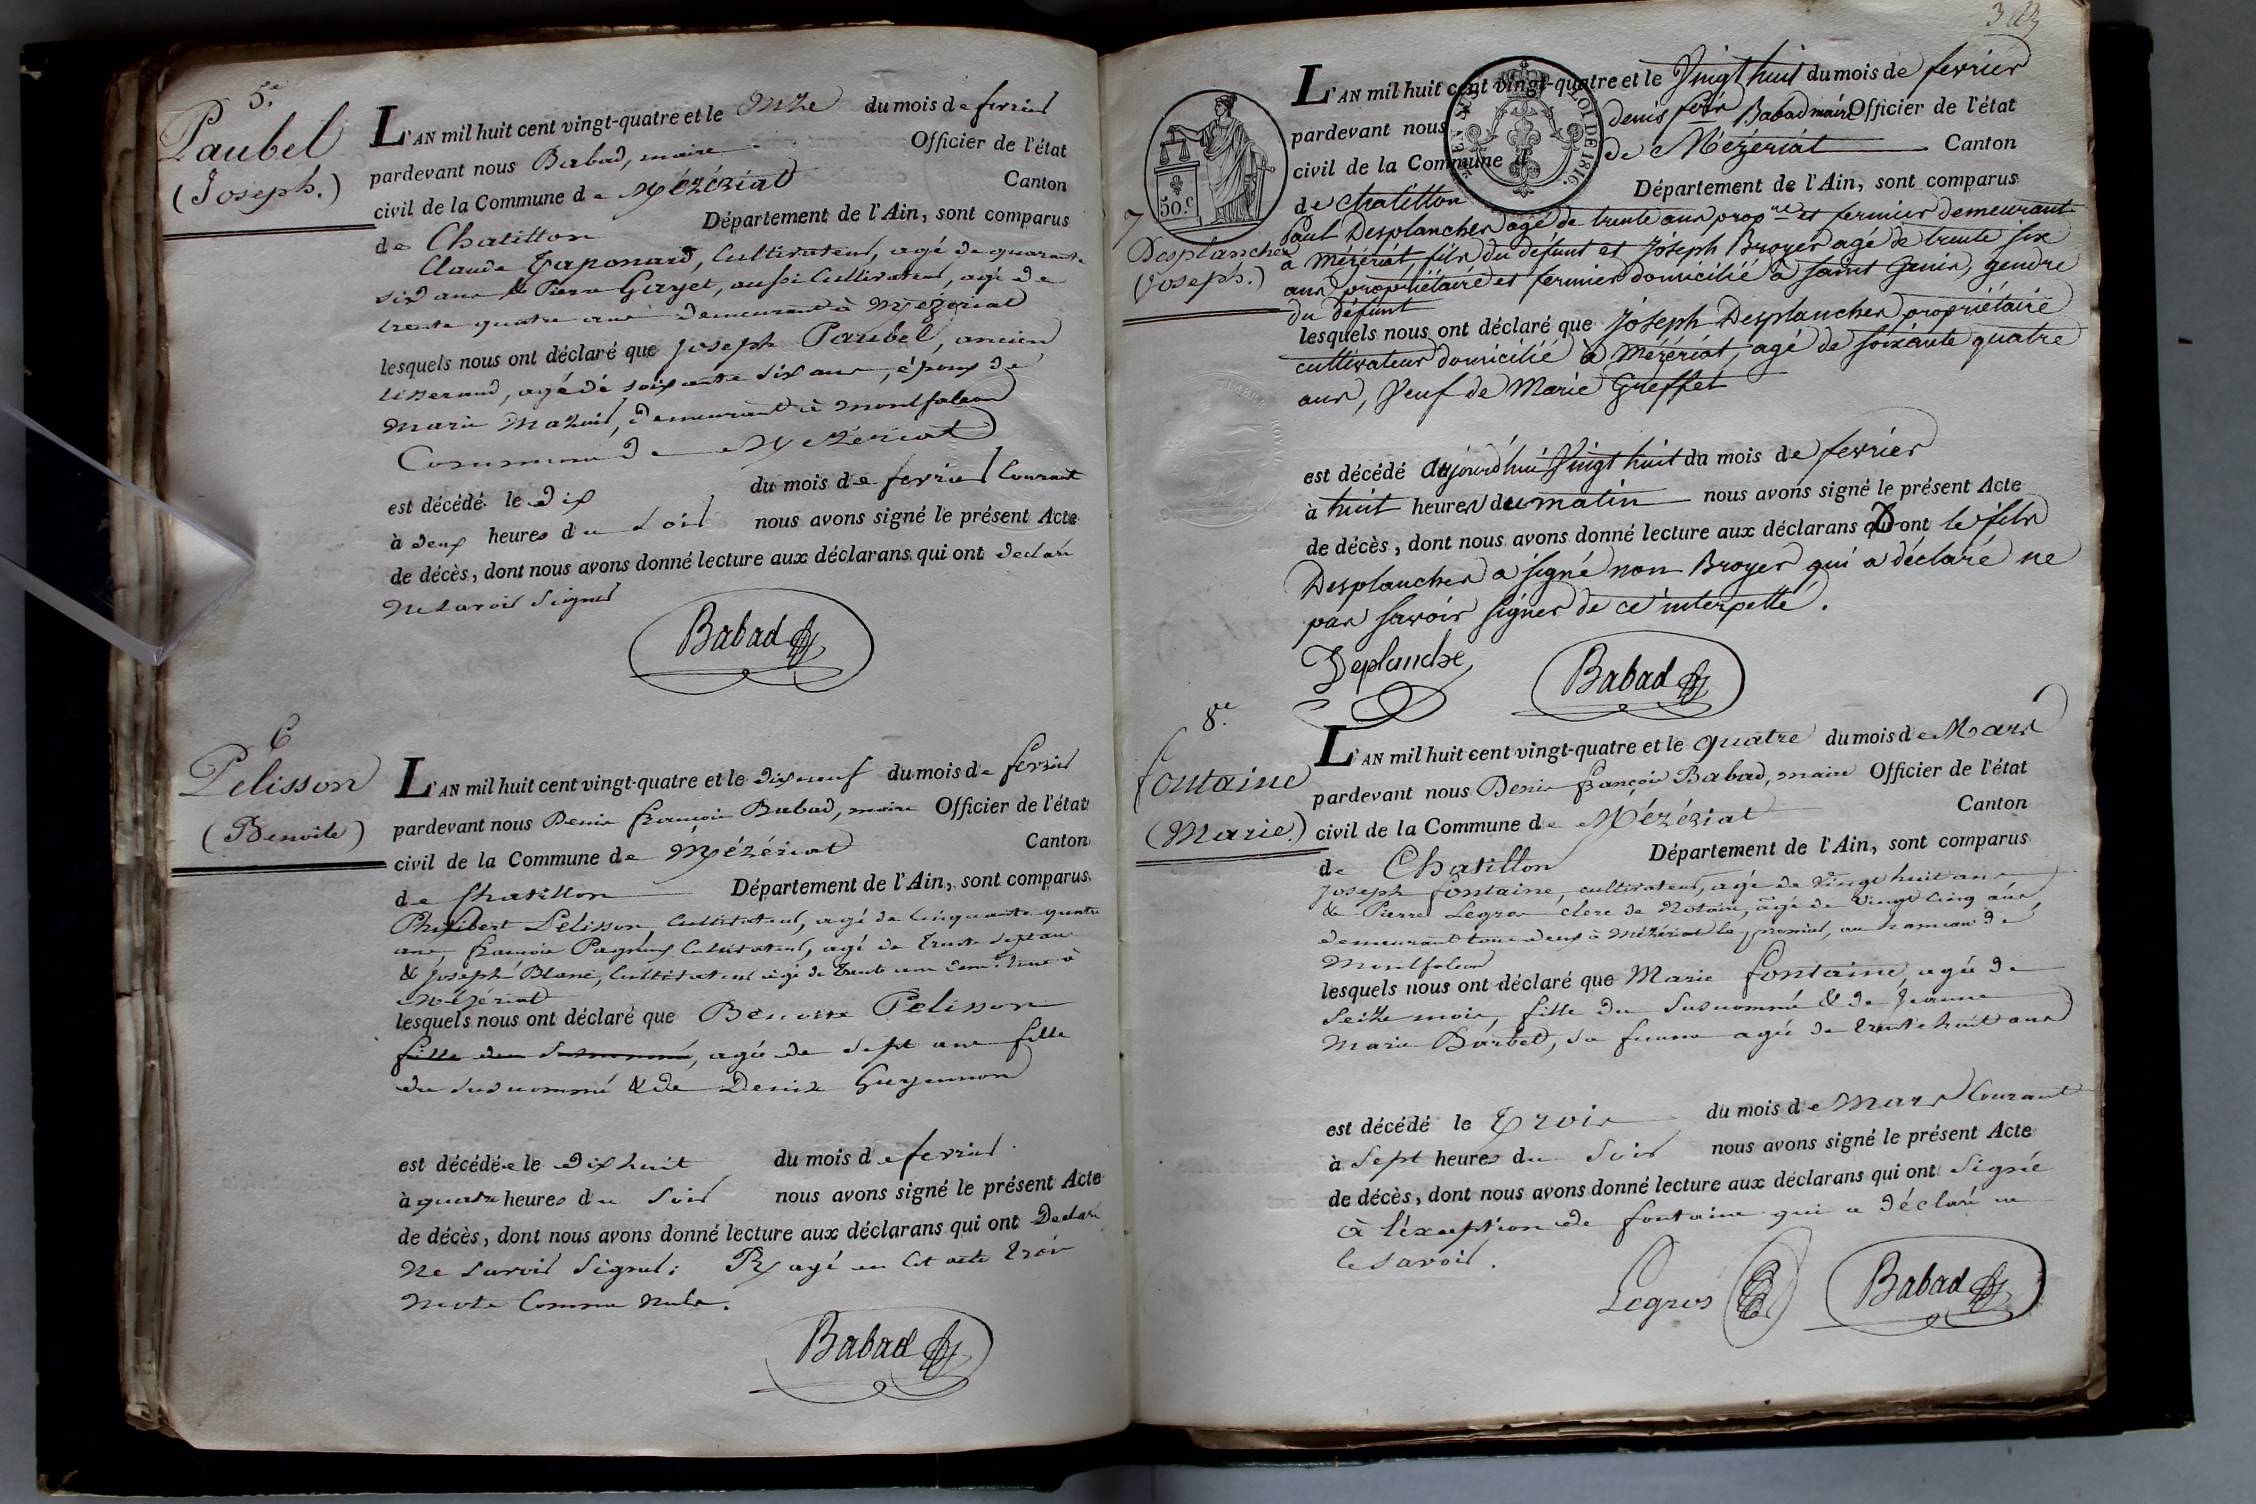 5.e
Paubel
(Joseph.)
L'AN mil huit cent vingt-quatre et le onze du mois de fevrier
pardevant nous Babad, maire Officier de l'état
civil de la Commune de Mézériat Canton
de Chatillon Département de l'Ain, sont comparus
Claude Taponard, Cultivateur, agé de quarante
six ans & Pierre Guyet, aussi Cultivateur, agé de
trente quatre ans demeurant à Mezeriat
lesquels nous ont déclaré que Joseph Paubel, ancien
tisserand, agé de soixante six ans, époux de
Marie demeurant à montfalcon
Commune de Mézériat
est décédé le dix du mois de fevrier Courant
à deux heures du soir nous avons signé le présent Acte
de décès, dont nous avons donné lecture aux déclarans qui ont declaré
ne savoir signer
Babad
6
Pelisson
(Benoite)
L'AN mil huit cent vingt-quatre et le dixneuf du mois de fevrier
pardevant nous Denis françois Babad, maire Officier de l'état
civil de la Commune de Mézériat Canton
de Chatillon Département de l'Ain, sont comparus
Philibert Pelisson, Cultivateur, agé de Cinquante quatre
ans, françois Cultivateur, agé de trente sept ans
& Joseph Blanc, Cultivateur agé de trente ans à
Mézériat
lesquels nous ont déclaré que Benoite Pelisson
fille du susnommé, agée de sept ans fille
du susnommé & de Denise Guyennon
est décédée le dix huit du mois de fevrier
à quatre heures du Soir nous avons signé le présent Acte
de décès, dont nous avons donné lecture aux déclarans qui ont Declaré
ne savoir signer; Rayé en cet acte trois
mots Comme nuls.
Babad
303
50.c
LOI DE 1816.
TIMBRE ROYAL
7
Desplanches
(Joseph.)
L'AN mil huit cent vingt-quatre et le Vingt huit du mois de fevrier
pardevant nous denis Babad maire Officier de l'état
civil de la Commune de Mézériat Canton
de chatillon Département de l'Ain, sont comparus
Paul Desplanches agé de trente ans prop.re et fermier demeurant
à Mézériat, fils du défunt et Joseph Broyer agé de trente six
ans propriétaire et fermier domicilié à saint Genis, gendre
du défunt
lesquels nous ont déclaré que Joseph Desplanches propriétaire
cultivateur domicilié à Mézériat, agé de soixante quatre
ans, Veuf de Marie Greffet
est décédé aujourd'hui Vingt huit du mois de fevrier
à huit heures du matin nous avons signé le présent Acte
de décès, dont nous avons donné lecture aux déclarans ont le fils
Desplanches a signé non Broyer qui a déclaré ne
pas savoir signer de ce interpellé.
Deplanche
Babad
8.e
fontaine
(Marie.)
L'AN mil huit cent vingt-quatre et le quatre du mois de Mars
pardevant nous Denis françois Babad, maire Officier de l'état
civil de la Commune de Mézériat Canton
de Chatillon Département de l'Ain, sont comparus
Joseph fontaine, cultivateur, agé de vingt huit ans
& Pierre Legros clerc de Notaire, agé de vingt Cinq ans,
demeurant tous deux à Mézériat le premier, au hameau de
Montfalcon
lesquels nous ont déclaré que Marie fontaine, agée de
Seize mois, fille du susnommé & de Jeanne
Marie Barbet, sa femme agée de trente huit ans
est décédé le Trois du mois de Mars Courant
à Sept heures du Soir nous avons signé le présent Acte
de décès, dont nous avons donné lecture aux déclarans qui ont signé
à l'éxception de fontaine qui a déclaré ne
le savoir.
Legros
Babad